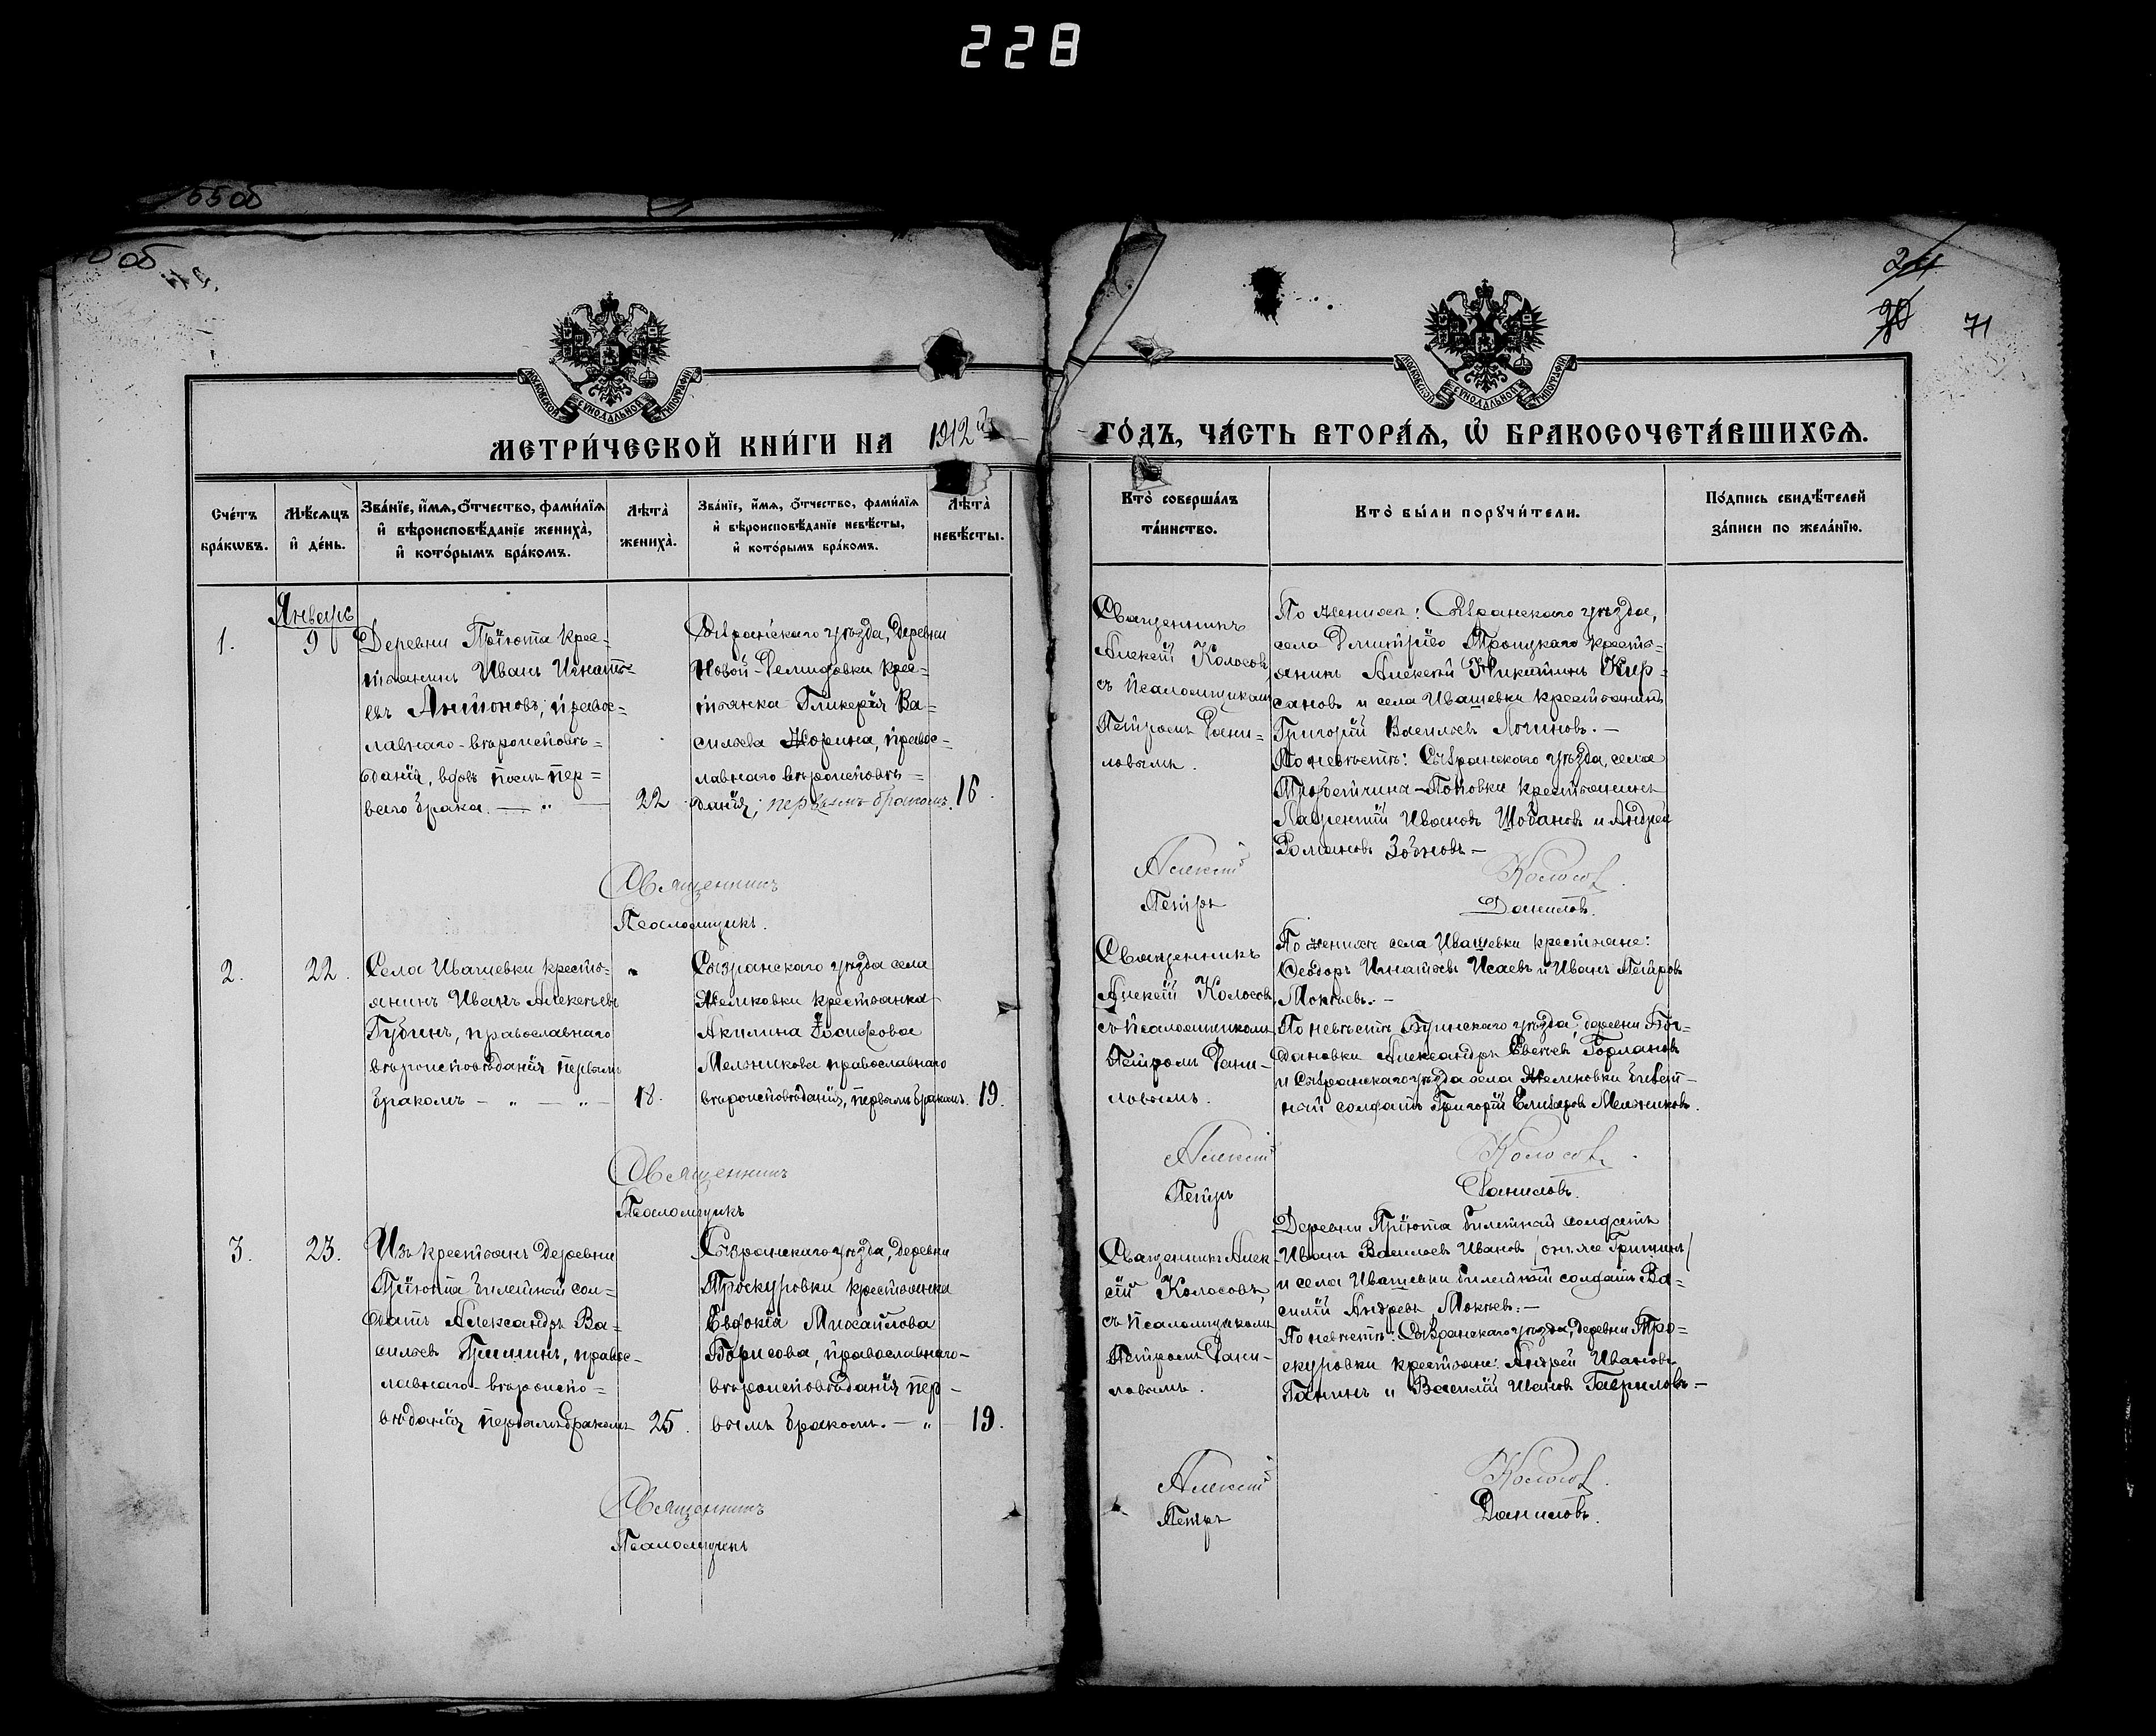 228
55 об
об
24
70
71
МОСКОВСКОЙ СѴНОДАЛЬНОЙ ТИПОГРАФІИ
МОСКОВСКОЙ СѴНОДАЛЬНОЙ ТИПОГРАФІИ
МЕТРИ́ЧЕСКОЙ КНИ́ГИ НА 1912й ГО́ДЪ, ЧА́СТЬ ВТОРА́Ѧ, Ѽ БРАКОСОЧЕТА́ВШИХСѦ.
Сче́тъ
бра́кωвъ.
Мѣ́сѧцъ
и҆ де́нь.
Зва́нїе, и҆́мѧ, ѻ҆́тчество, фами́лїѧ
и҆ вѣроисповѣ́данїе жениха̀,
и҆ кото́рымъ бра́комъ.
Лѣ́та̀
жениха̀.
Зва́нїе, и҆́мѧ, ѻ҆́тчество, фами́лїѧ
и҆ вѣроисповѣ́данїе невѣ́сты,
и҆ кото́рымъ бра́комъ.
Лѣ́та̀
невѣ́сты.
Кто̀ соверша́лъ
та́инство.
Кто̀ бы́ли порꙋчи́тели.
По́дпись свидѣ́телей
за́писи по жела́нїю.
Январь
1.
9
Деревни Пріюта крес=
тьянинъ Иванъ Игнать=
евъ Антоновъ, правос=
лавнаго-вѣроисповѣ=
данія, вдовъ послѣ пер=
ваго брака. — „ —
22
Сызранскаго уѣзда, деревни
Новой-Демидовки крес=
тьянка Гликерія Ва=
сильева Жорина, правос=
лавнаго вѣроисповѣ=
данія; первымъ бракомъ.
16.
Священникъ
Алексій Колосовъ,
съ псаломщикомъ
Петромъ Дани=
ловымъ.
По женихѣ: Сызранскаго уѣзда,
села Дмитріево Троицкаго кресть=
янинъ Алексѣй Никитинъ Кир=
сановъ и села Ивашевки крестьянинъ
Григорій Васильевъ Логиновъ. —
По невѣстѣ: Сызранскаго уѣзда, села
Поповки крестьянинъ
Лаврентій Ивановъ Шобановъ и Андрей
Романовъ Зобновъ —
Священникъ Алексій Колосовъ.
Псаломщикъ. Петръ Даниловъ.
2.
22.
Села Ивашевки кресть=
янинъ Иванъ Алексѣевъ
Губинъ, православнаго
вѣроисповѣданія первымъ
бракомъ — „ — „ —
18.
Сызранскаго уѣзда села
Жемковки крестьянка
Акилина Іосифова
Мельникова православнаго
вѣроисповѣданія, первымъ бракомъ.
19.
Священникъ
Алексій Колосовъ,
съ псаломщикомъ
Петромъ Дани=
ловымъ.
По женихѣ села Ивашевки крестьяне:
Ѳеодоръ Игнатьевъ Исаевъ и Иванъ Петровъ
Мокѣевъ. —
По невѣстѣ Буинскаго уѣзда, деревни Бог=
дановки Александръ Евсѣевъ Горлановъ
и Сызранскаго уѣзда села Жемковки билет=
ный солдатъ Григорій Елизаровъ Мельниковъ.
Священникъ Алексій Колосовъ.
Псаломщикъ Петръ Даниловъ.
3.
23.
Изъ крестьянъ деревни
Пріюта билетный сол=
датъ Александръ Ва=
сильевъ Гришинъ, правос=
лавнаго-вѣроиспо=
вѣданія первымъ бракомъ
25.
Сызранскаго уѣзда, деревни
Проскуровки крестьянка
Евдокія Михайлова
Борисова, православнаго-
вѣроисповѣданія пер=
вымъ бракомъ. — „ —
19.
Священникъ Алек=
сій Колосовъ,
съ псаломщикомъ
Петромъ Дани=
ловымъ.
Деревни Пріюта билетный солдатъ
Иванъ Васильевъ Ивановъ /онъ же Гришинъ/
и села Ивашевки билетный солдатъ Ва=
силій Андреевъ Мокѣевъ. —
По невѣстѣ: Сызранскаго уѣзда, деревни Про=
скуровки крестьяне: Андрей Ивановъ
Ганинъ и Василій Ивановъ Гавриловъ. —
Священникъ Алексій Колосовъ.
Псаломщикъ Петръ Даниловъ.